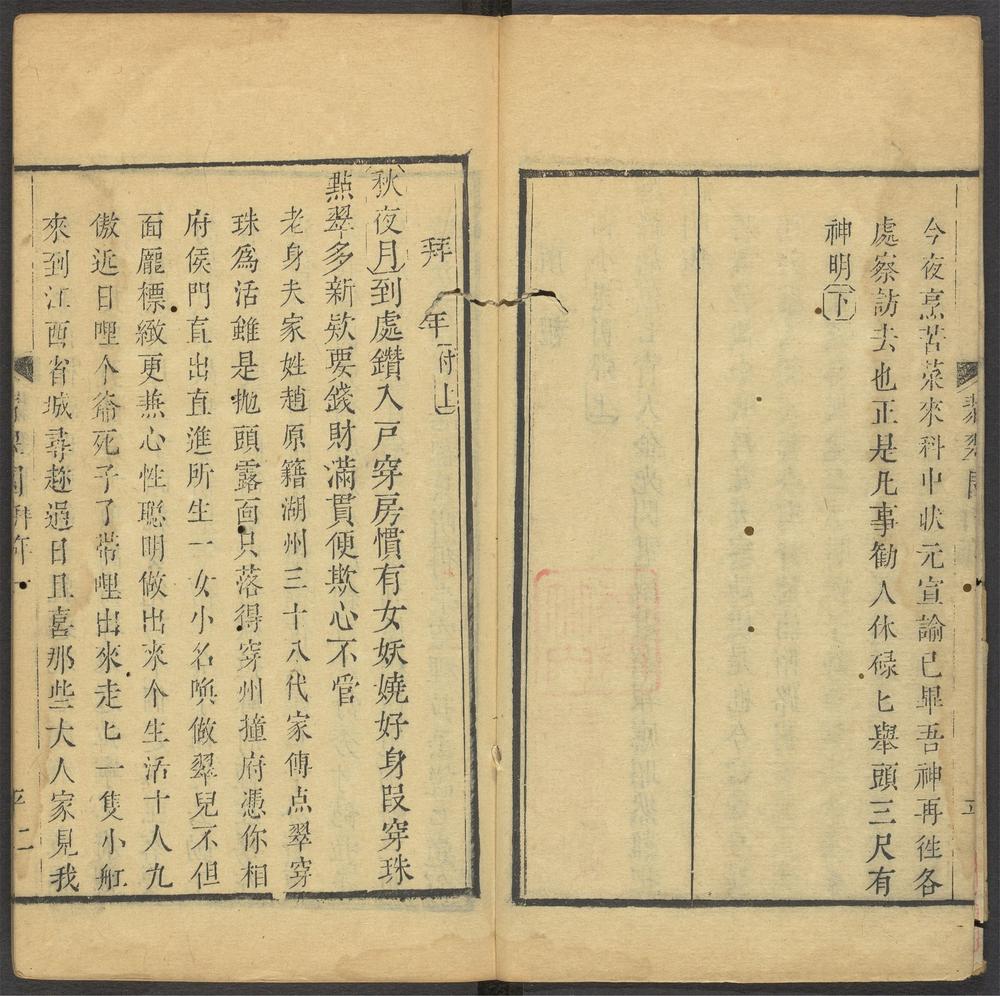 今夜烹苦菜來科中狀元宣諭已畢吾神再徃各
處察訪去也正是凡事勸人休碌匕舉頭三尺有
神明下
翡翠園
拜年付上
秋夜月到處鑽入戸穿房慣有女妖嬈好身叚穿珠
點翠多新欵要錢財滿貫便欺心不管
老身夫家姓趙原籍湖州三十八代家傳点翠穿
珠爲活雖是抛頭露面只落得穿州撞府憑你相
府侯門直出直進所生一女小名喚做翠兒不但
面龐標緻更兼心性聰明做出來个生活十人九
傲近日哩个爺死子了帶哩出來走匕一隻小舡
來到江西省城尋趂過日且喜那些大人家見我
翡翠園拜年 二